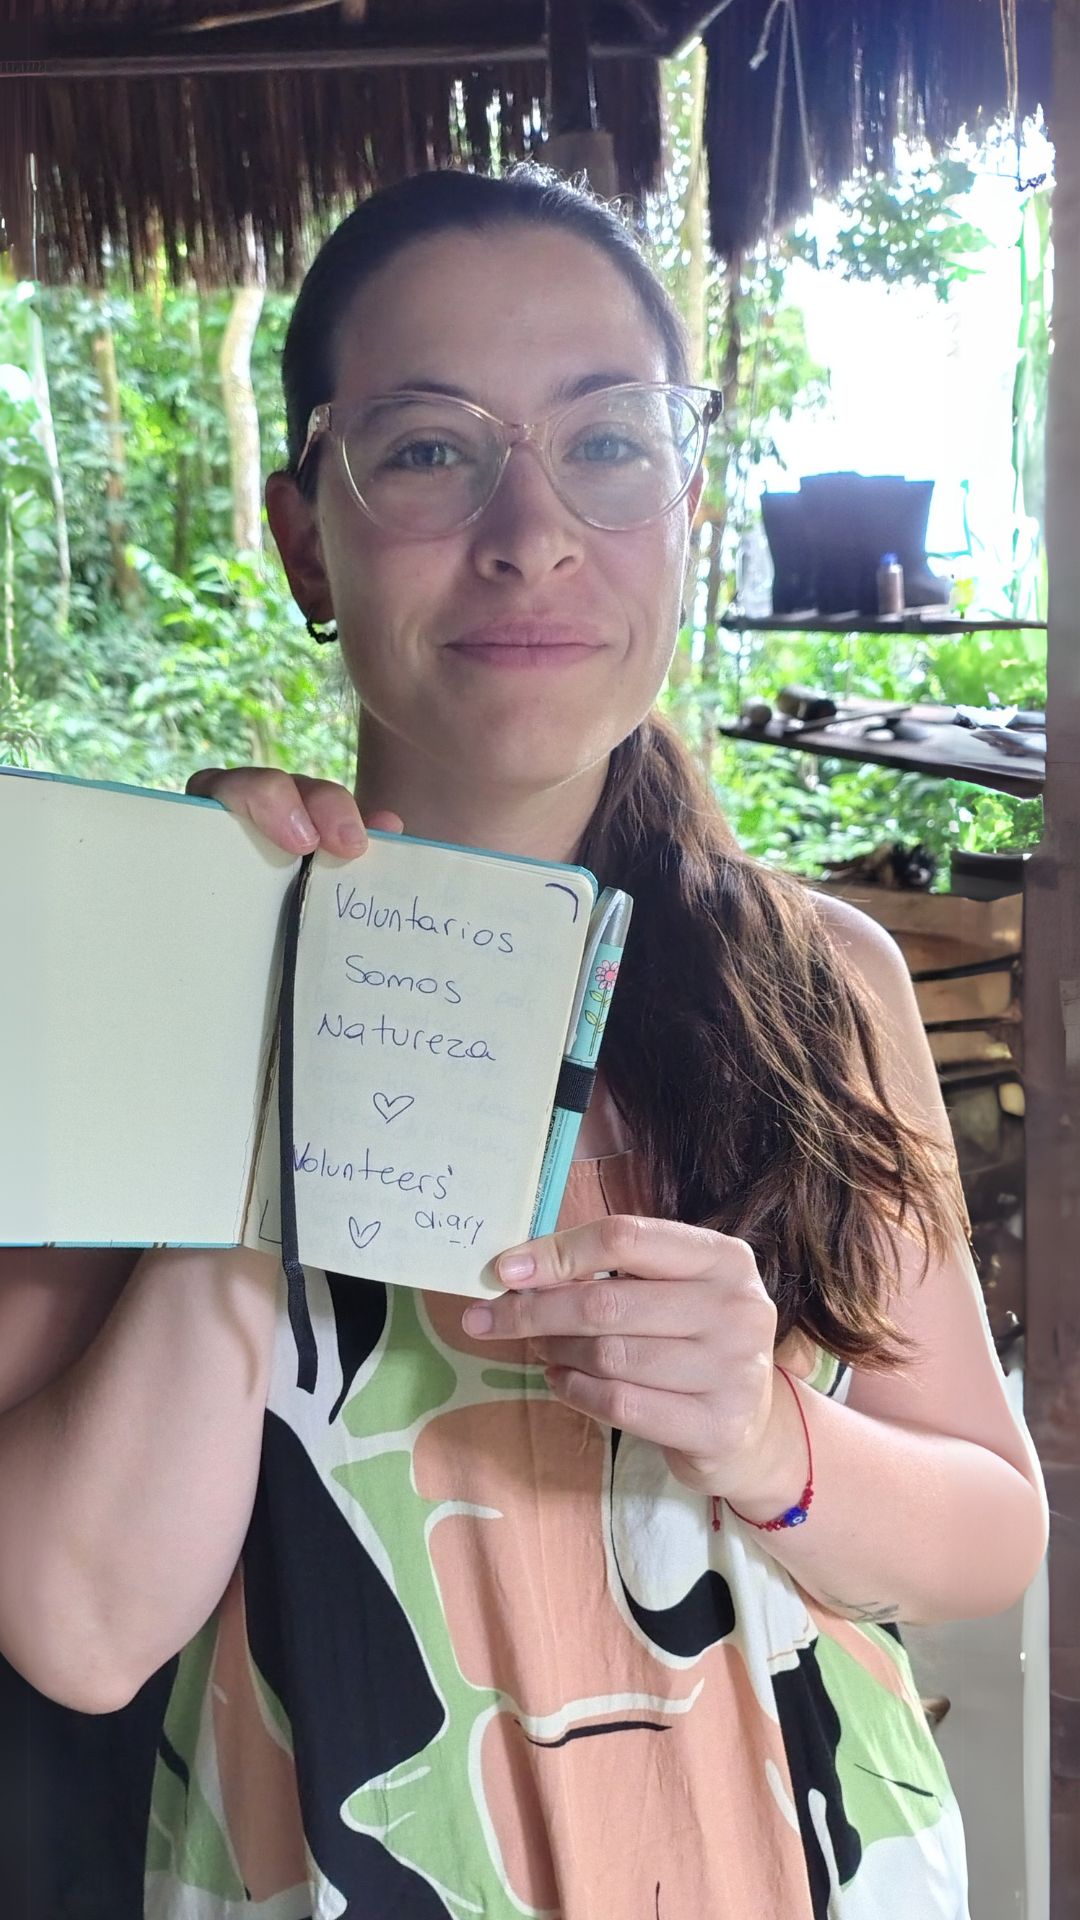 Voluntarios
Somos
Natureza
♡
Volunteers'
diary
♡